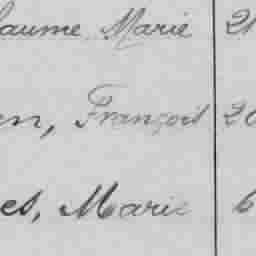 laume Marie 21
en, François 20
es, Marie 6